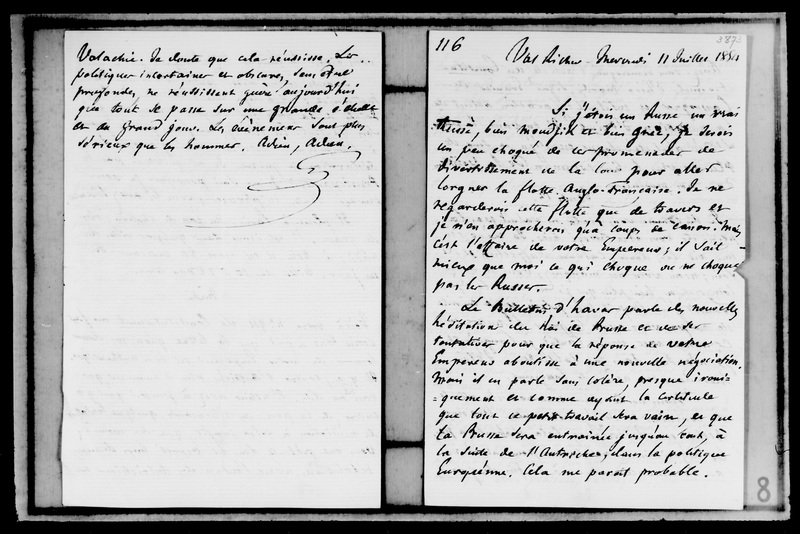 Valachie. Je doute que cela réussisse. Les
politiques incertaines et obscures, sans être
profondes, ne réussissent guère aujourd'hui
que tout se passe sur une grande échelle
et au grand jour. Les événemens sont plus
sérieux que les hommes. Adieu, Adieu.
G
116
3873
Val Richer. Mercredi 11 Juillet 1854
Si j'étois un Russe un vrai
Russe, bien moudjik et bien grec, je serois
un peu choqué de ces promenades de
divertissement de la Cour pour aller
lorgner la flotte Anglo-française. Je ne
regarderois cette flotte que de travers et
je n'en approcherois qu'à coups de canon. Mais
c'est l'affaire de votre Empereur; il sait
mieux que moi ce qui choque ou ne choque
pas les Russes.
Le Bulletin d'havas parle des nouvelles
hésitations du Roi de Prusse et de ses
tentatives pour que la réponse de votre
Empereur aboutisse à une nouvelle négociation.
Mais il en parle sans colère, presque ironi-
=quement et comme ayant la certitude
que tout ce travail sera vain, et que
la Prusse sera entrainée jusqu'au bout, à
la suite de l'Autriche, dans la politique
Européenne. Cela me paroit probable.
8